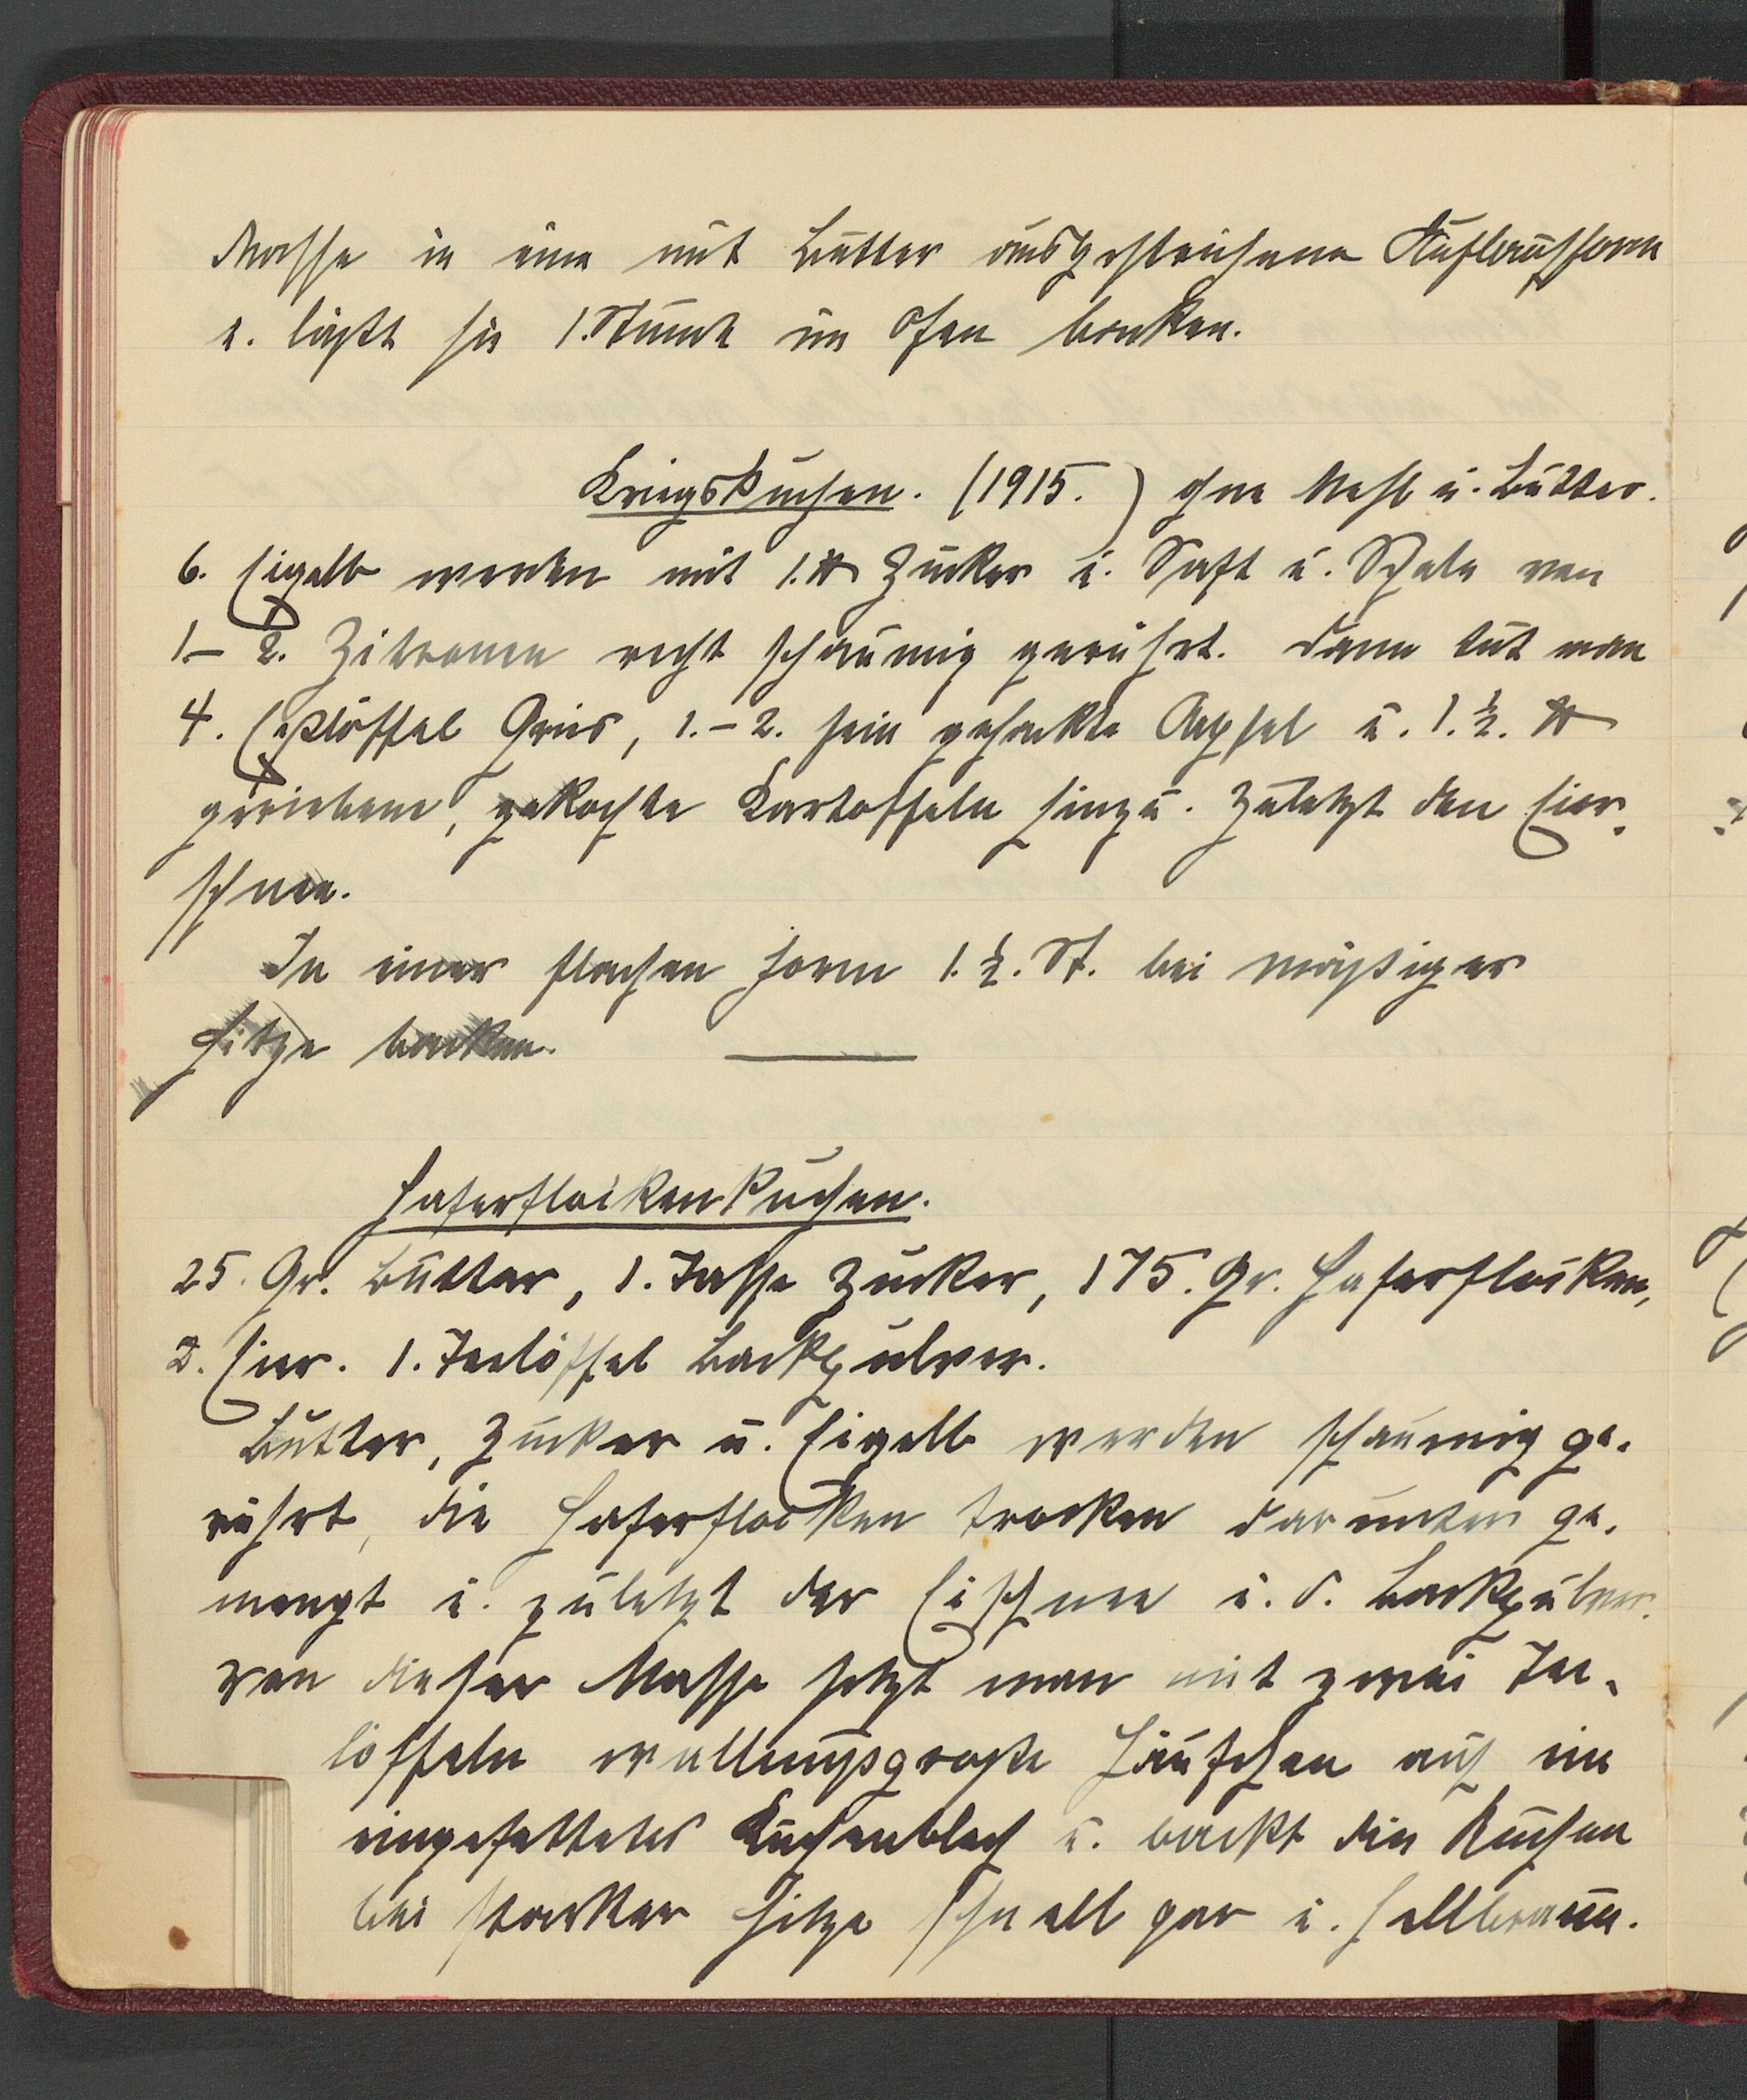 Masse in eine mit Butter ausgestrichene Auflaufform
u. läßt sie 1. Stunde im Ofen backen.
Kriegskuchen. (1915.) ohne Mehl u. Butter.
6. Eigelb werden mit 1. ℔ Zucker u. Saft u. Schale von
1.- 2. Zitronen recht schaumig gerührt. Dann tut man
4. Eßlöffel Gries, 1.-2. fein gehackte Aepfel u. 1. ½. ℔
geriebene, gekochte Kartoffeln hinzu. Zuletzt den Eier-
schnee.
In einer flachen Form 1. ½. St. bei mäßiger
Hitze backen.
Haferflockenkuchen.
25. Gr. Butter, 1. Tasse Zucker, 175. Gr. Haferflocken,
2. Eier. 1. Teelöffel Backpulver.
Butter, Zucker u. Eigelb werden schaumig ge-
rührt, die Haferflocken trocken darunter ge-
mengt u. zuletzt der Eischnee u. d. Backpulver.
Von dieser Masse setzt man mit zwei Tee-
löffeln wallnußgroße Häufchen auf ein
eingefettetes Kuchenblech u. backt die Kuchen
bei starker Hitze schnell gar u. hellbraun.